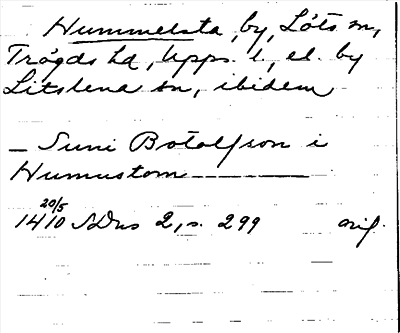 Hummelsta, by, Löts sn,
Trögds hd, Upps. l., el. by
Litslena sn, ibidem
— Suni Botolfson i
Humustom
20/5
1410 SDns 2, s. 299 orig.